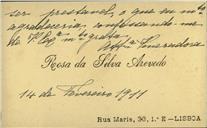 ser prestavel, o que eu m.to
agradeceria, confessando-me
de V. Ex.a m.to grata
Att.a Veneradora
Rosa da Silva Azevedo
14 de Fevereiro 1911
Rua Maria, 36, 1.º E — LISBOA